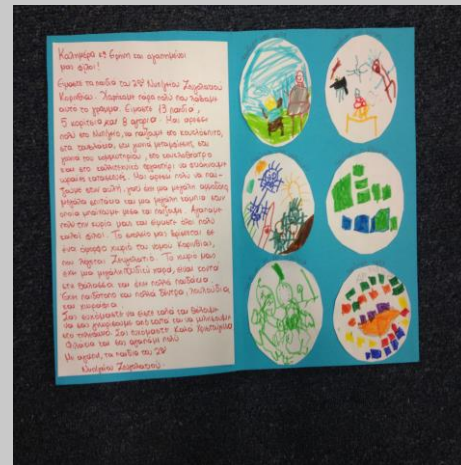 Καλημέρα κα Ειρήνη και αγαπημένοι
μας φίλοι!
Είμαστε τα παιδιά του 2ου Νηπ/γείου Ζευγολατιού
Κορινθίας. Χαρήκαμε πάρα πολύ που λάβαμε
αυτό το γράμμα. Είμαστε 13 παιδιά,
5 κορίτσια και 8 αγόρια. Μας αρέσει
πολύ στο Νηπ/γείο, να παίζουμε στο κουκλόσπιτο,
στα τουβλάκια, στη γωνιά μεταμφίεσης, στη
γωνιά του , στο κουκλοθέατρο
και στο καλλιτεχνικό εργαστήρι να φτιάχνουμε
ωραίες κατασκευές. Μας αρέσει πολύ να παί-
ζουμε στην αυλή, γιατί έχει μια μεγάλη
μεγάλη τσουλήθρα και μια μεγάλη στην
οποία μπαίνουμε μέσα και παίζουμε. Αγαπάμε
πολύ την κυρία μας και είμαστε όλοι πολύ
καλοί φίλοι. Το σχολείο μας βρίσκεται σε
ένα όμορφο χωριό του νομού Κορινθίας,
που λέγεται Ζευγολατιό. Το χωριό μας
έχει μια μεγάλη παιδική χαρά, είναι κοντά
στη θάλασσα και έχει πολλά .
Έχει παιδότοπο και πολλά δέντρα, λουλούδια,
και .
Σας ευχόμαστε να είστε καλά και θέλουμε
να σας γνωρίσουμε από κοντά και να μιλήσουμε
στο τηλέφωνο. Σας ευχόμαστε Καλά Χριστούγεννα
και σας αγαπάμε πολύ
Με αγάπη, τα παιδιά του 2ου
Νηπ/γείου Ζευγολατιού.